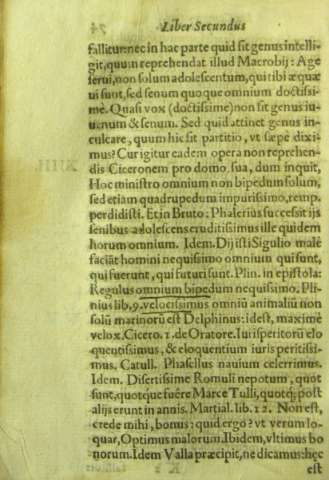 Liber Secundus
fallitur: nec in hac parte quid sit genus intelli-
git, quum reprehendat illud Macrobij: Age
serui, non solum adolescentum, qui tibi æquæ
ui sunt, sed senum quoque omnium doctissi-
me. Quasi vox (doctissime) non sit genus iu-
uenum & senum. Sed quid attinet genus in-
culcare, quum hic sit partitio, vt sæpe dixi-
mus? Cur igitur eadem opera non reprehen-
dis Ciceronem pro domo sua, dum inquit,
Hoc ministro omnium non bipedum solum,
sed etiam quadrupedum impurissimo, reup.
perdidisti. Et in Bruto: Phalerius successit ijs
senibus adolescens eruditissimus ille quidem
horum omnium. Idem. Dij isti Sigulio male
faciāt homini nequissimo omnium qui sunt,
qui fuerunt, qui futuri sunt. Plin. in epistola:
Regulus omnium bipedum nequissimo. Pli-
nius lib. 9. velocissimus omniū animaliū non
solū marinorū est Delphinus: idest, maximè
velox. Cicero. 1. de Oratore. Iurisperitorū elo
quentissimus, & eloquentium iuris peritissi-
mus. Catull. Phasellus nauium celerrimus.
Idem. Disertissime Romuli nepotum, quot
sunt, quotque fuêre Marce Tulli, quotq; post
alijs erunt in annis. Martial. lib. 12. Non est,
crede mihi, bonus: quid ergo? vt verum lo-
quar, Optimus malorum. Ibidem, vltimus bo
norum. Idem Valla præcipit, ne dicamus: hęc
est